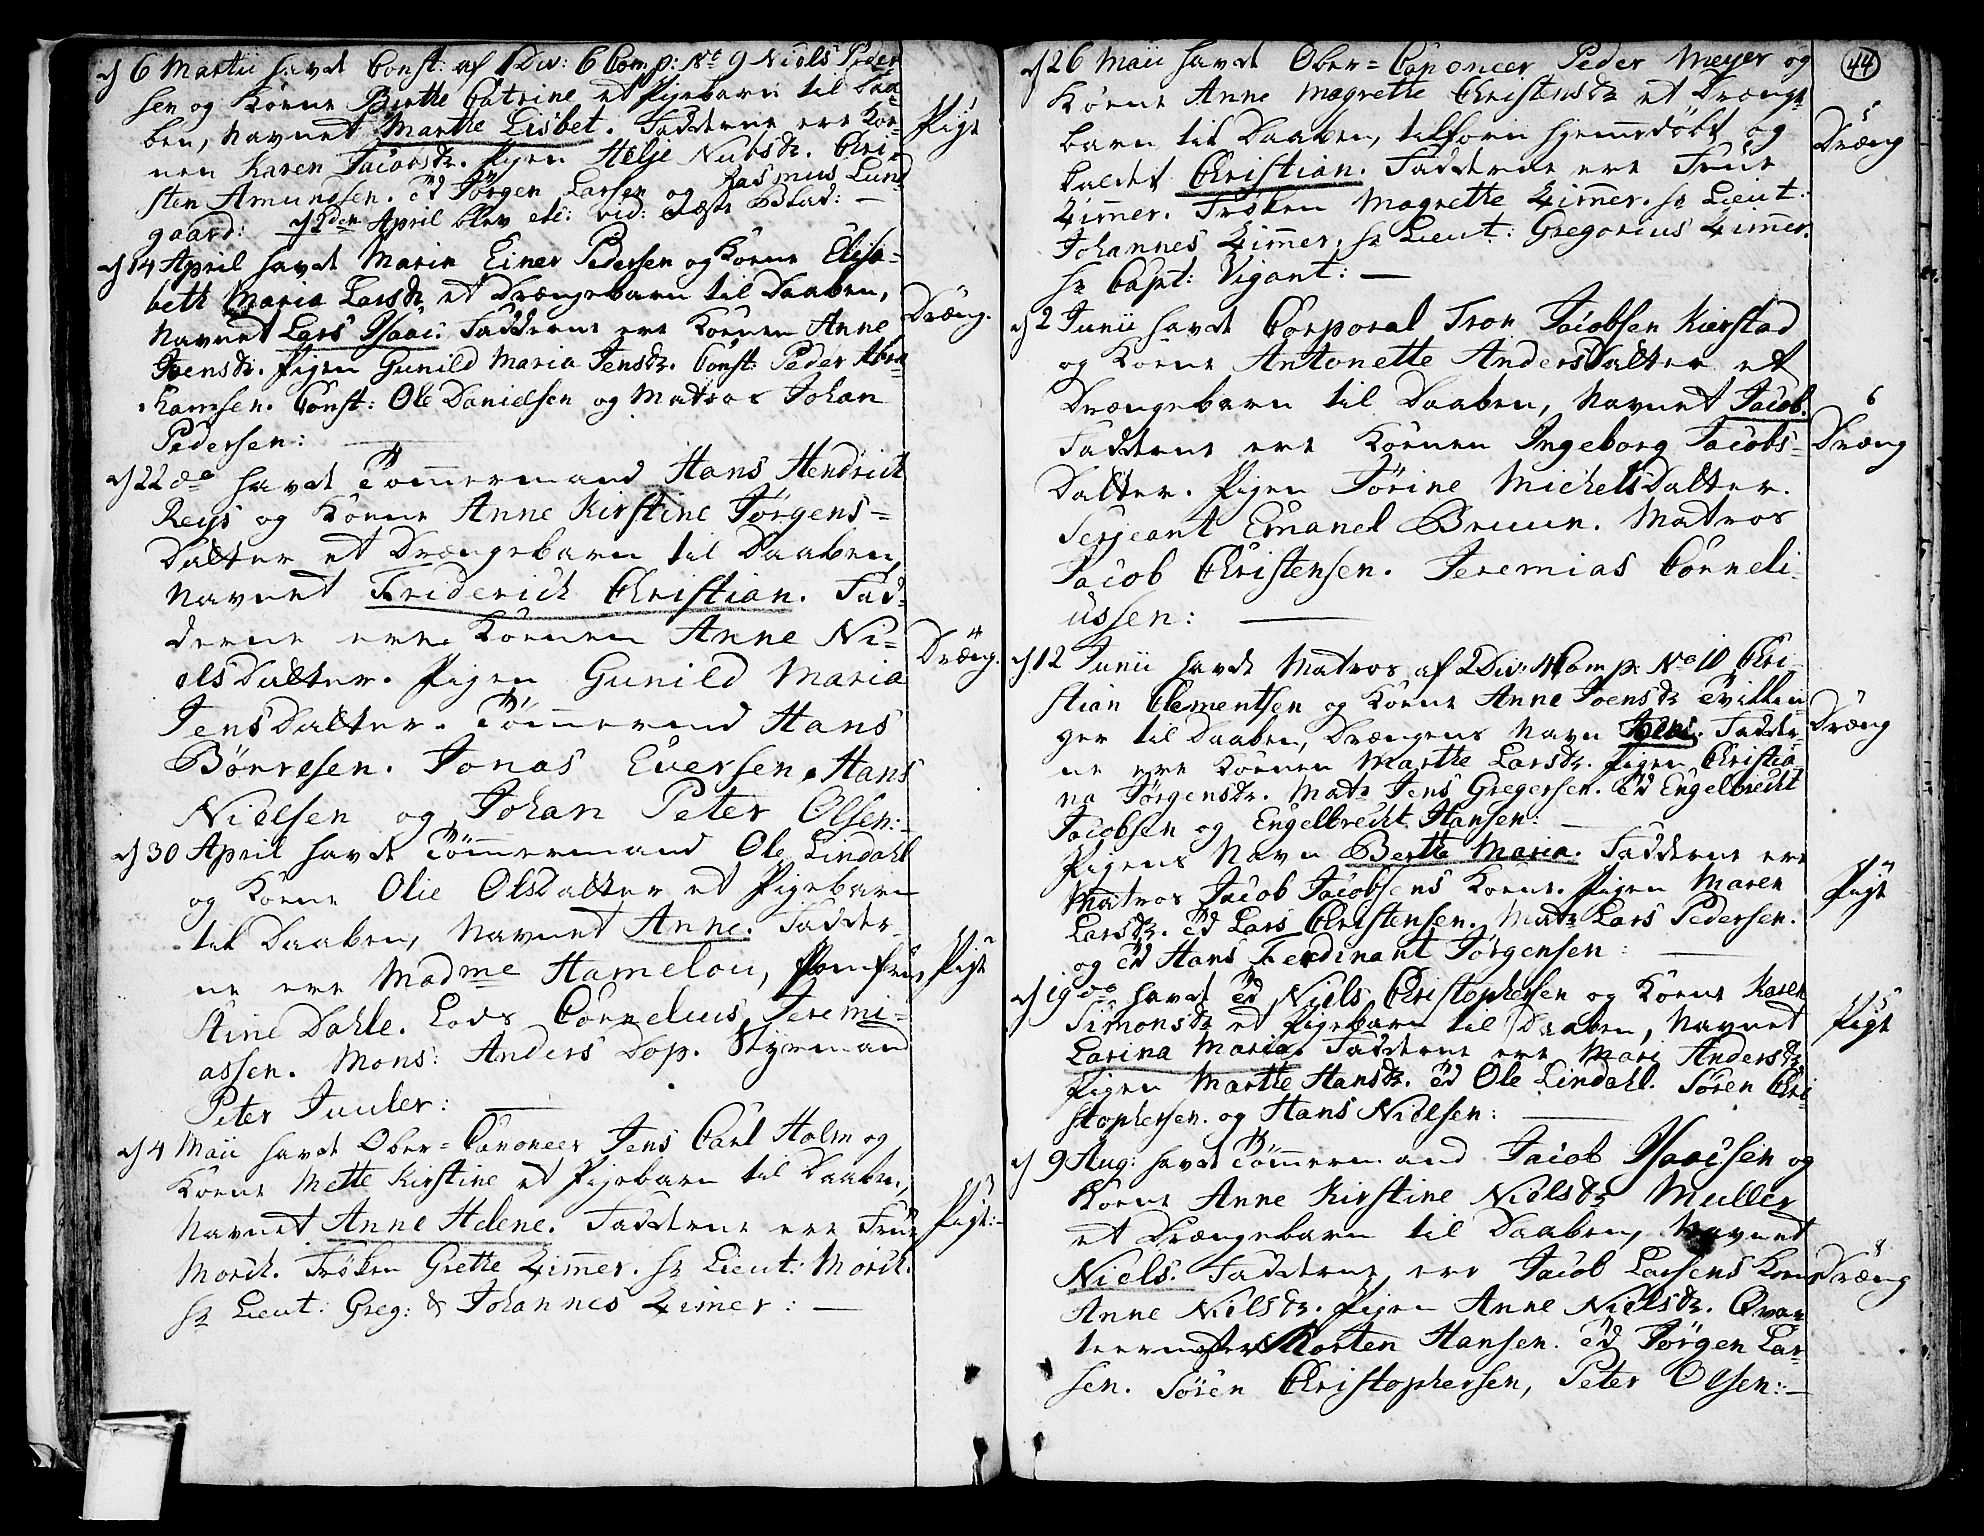 d 6 Martii havde Const: af 1 Div: 6 Comp: No 9 Niels Peder
sen og Kone Birthe Catrine et Pigebarn til Daa-
ben, Navnet Marthe Lisbet. Fadderne ere Kon-
nen Karen Jacobsdr. Pigen Helje Nielsdr. Chri-
sten Amundsen. Ed Jørgen Larsen og Rasmus Lund
gaard: d 2den April blev etc: vid: Næste Blad: —
Pige
d 14 April havde Marin Einer Pedersen og Kone Elisa-
beth Maria Larsdr et Drængebarn til Daaben,
Navnet Lars Isaac. Fadderne ere Konen Anne
Joensdr. Pigen Gunild Maria Jensdr. Const: Peder Abra
hamsen. Const: Ole Danielsen og Matros Johan
Pedersen: —
Dræng.
d 22 do havde Tømmermand Hans Hendrich
Reys og Kone Anne Kirstine Jørgens-
Datter et Drængebarn til Daaben,
Navnet Friderich Christian. Fad-
derne ere Konen Anne Ni-
elsDatter. Pigen Gunild Maria
JensDatter. Tømmermd Hans
Børresen. Jonas Eversen, Hans
Nielsen og Johan Peter Olsen:-
4
Dræng.
d 30 April havde Tømmermand Ole Lindahl
og Kone Olie OlsDatter et Pigebarn
til Daaben, Navnet Anne. Fadder-
ne ere Madme Hamelou, Jomfrue
Stine Dahle. Lods Cornelius Jeremi-
assen. Mons: Anders Dop. Styrmand
Peter Juuler: —
Pige
d 4 Maii havde Ober-Canoneer Jens Carl Holm og
Kone Mette Kirstine et Pigebarn til Daaben,
Navnet Anne Helene. Fadderne ere Frue
Morch. Frøken Grethe Zimmer. Hr Lieut: Morch.
Hr Lieut: Greg: & Johannes Zimer: —
3
Pige:-
44
d 26 Maii havde Ober-Canoneer Peder Meyer og
Kone Anne Magrethe Christensdr et Drænge
barn til Daaben, tilforn hjemmedøbt og
kaldet Christian. Fadderne ere Frue
Zimmer. Frøken Magrette Zimmer. Hr Lieut:
Johannes Zimmer. Hr Lieut: Gregorius Zimmer.
Hr Capt: Vigant: —
5
Dræng
d 2 Junii havde Corporal Tron Jacobsen Kierstad
og Kone Antonette AndersDatter et
Drængebarn til Daaben, Navnet Jacob.
Fadderne ere Konen Ingeborg Jacobs-
Datter. Pigen Torine MichelsDatter.
Serjeant Emanel Bruun. Matros
Jacob Christensen. Jeremias Corneli-
ussen: —
6
Dræng
d 12 Junii havde Matros af 2 Div: 4 Comp: No 10 Chri-
stian Clementsen og Kone Anne Joensdr Tvillin-
ger til Daaben, Drængens Navn Jens. Fadder
ne ere Konen Marthe Larsdr. Pigen Christia-
na Jørgensdr. Matr Jens Gregersen. Ed Engelbrecht
Jacobsen og Engelbrecht Hansen: —
Dræng
Pigens Navn Berthe Maria. Fadderne ere
Matros Jacob Jacobsens Kone. Pigen Maren
Larsdr. Ed Lars Christensen. Matr Lars Pedersen.
og Ed Hans Ferdinant Jørgensen: —
4
Pige
d 19 do havde Ed Niels Christophersen og Kone Karen
Simonsdr et Pigebarn til Daaben, Navnet
Larina Maria. Fadderne ere Mari Andersdr
Pigen Marthe Hansdr. Ed Ole Lindahl. Søren Chri-
stophersen. og Hans Nielsen: —
5
Pige
d 9 Aug: havde Tømmermand Jacob Isaacsen og
Kone Anne Kirstine Nielsdr Muller
et Drængebarn til Daaben, Navnet
Niels. Fadderne ere Jacob Larsens Kone
Anne Nielsdr. Pigen Anne Nielsdr. Qvar
teermester Morten Hansen. Ed Jørgen Lar-
sen. Søren Christophersen, Peter Olsen:—
8
Dræng